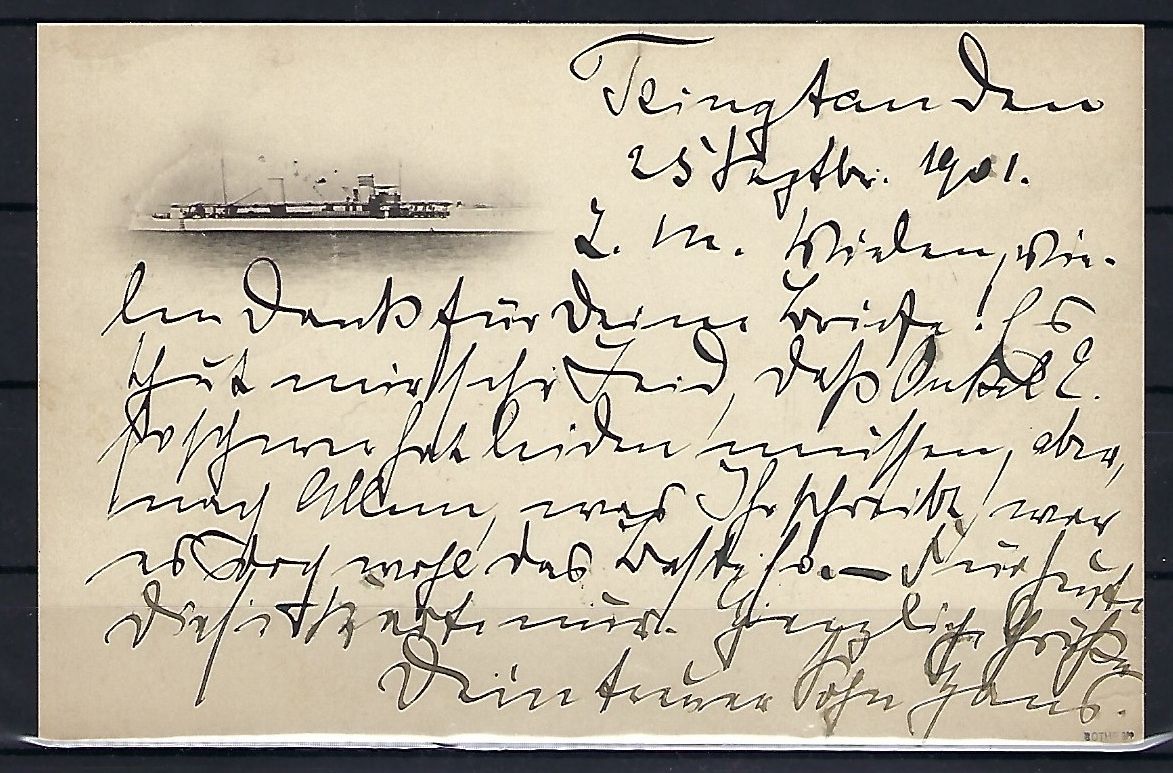 Tsingtau den
25 Septbr. 1901.
L. M. Vielen, vie-
len Dank für Deine Briefe! Es
thut mir sehr Leid, daß Onkel E.
so schwer hat leiden müssen, aber,
nach Allem, was Ihr schreibt, war
es doch wohl das Beste so. — Für heute
diese Karte nur. Herzliche Grüße
Dein treuer Sohn Hans.